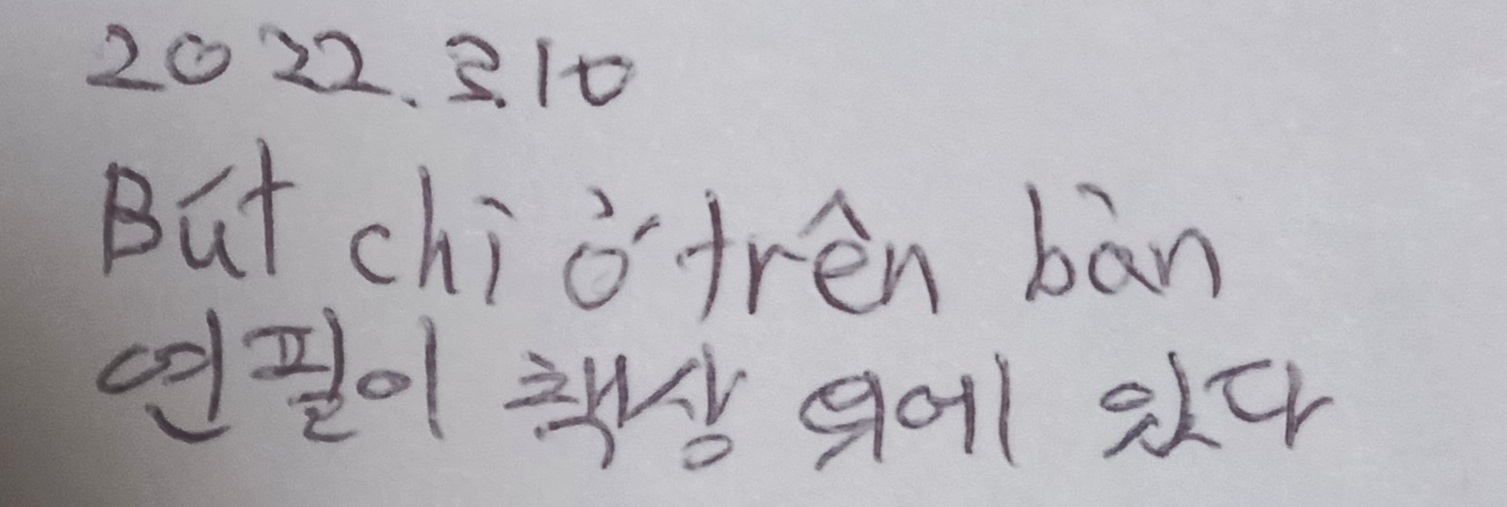 2022.3.10
Bút chì ở trên bàn
연필이 책상 위에 있다